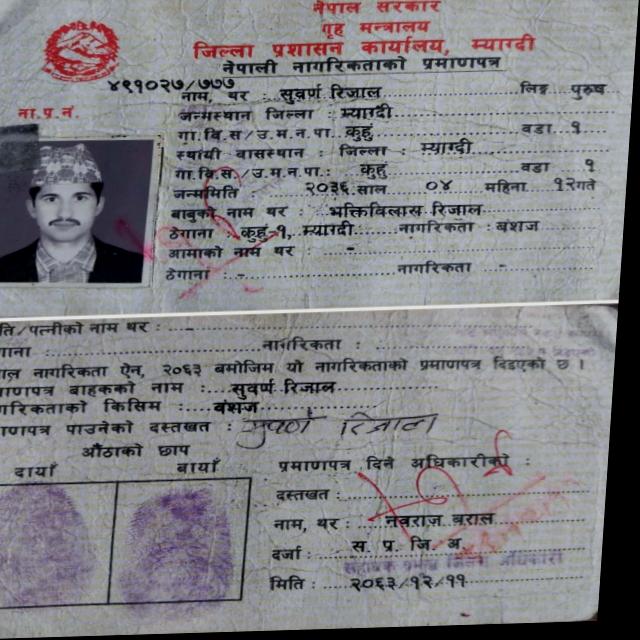 नेपाल सरकार
गृह मन्त्रालय
जिल्ला प्रशासन कार्यालय, म्याग्दी
नेपाली नागरिकताको प्रमाणपत्र
ना.प्र.नं. ४९१०२७/७७७
नाम, थर सुवर्ण रिजाल लिङ्ग पुरुष
जन्मस्थान जिल्ला : म्याग्दी
गा.वि.स/उ.म.न.पा. कुहुं वडा १
स्थायी वासस्थान जिल्ला : म्याग्दी
गा.वि.स/उ.म.न.पा.: कुहुं वडा १
जन्ममिति २०३६ साल ०४ महिना १२गते
बाबुको नाम थर : भक्तिविलास रिजाल
ठेगाना : कुहुं-१, म्याग्दी नागरिकता : बंशज
आमाको नाम थर -
ठेगाना : - नागरिकता -
ति/पत्नीको नाम थर :
गाना नागरिकता :
नागरिकता ऐन, २०६३ बमोजिम यो नागरिकताको प्रमाणपत्र दिइएको छ ।
माणपत्र बाहकको नाम : सुवर्ण रिजाल
गरिकताको किसिम : बंशज
माणपत्र पाउनेको दस्तखत : सुवर्ण रिजाल
औंठाको छाप
दायाँ बायाँ
प्रमाणपत्र दिने अधिकारीको :
दस्तखत :
नाम, थर : नवराज बराल
दर्जा : स. प्र. जि. अ.
मिति : २०६३/१२/११